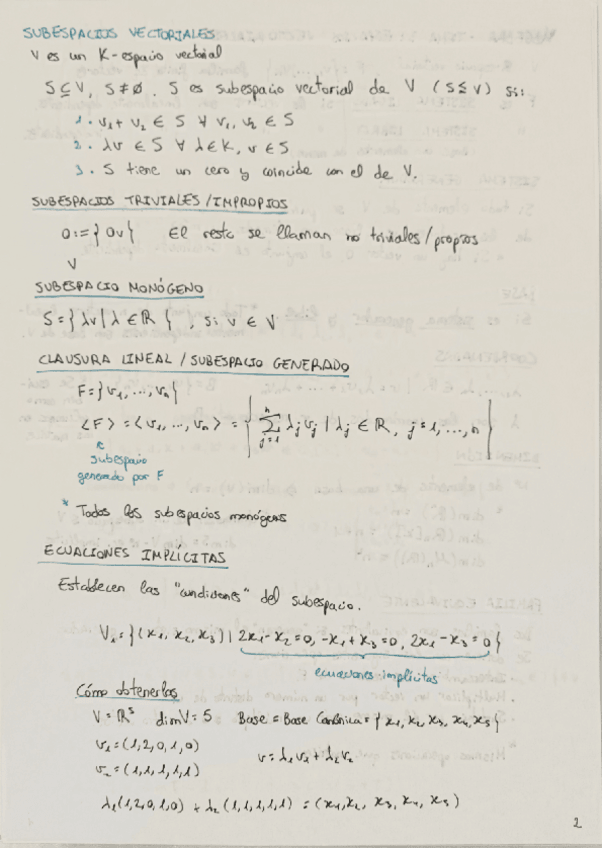 SUBESPACIOS VECTORIALES
V es un K-espacio vectorial
S ⊆ V, S ≠ ∅. S es subespacio vectorial de V (S ≤ V) si:
1. v₁ + v₂ ∈ S ∀ v₁, v₂ ∈ S
2. λv ∈ S ∀ λ ∈ K, v ∈ S
3. S tiene un cero y coincide con el de V.
SUBESPACIOS TRIVIALES/IMPROPIOS
0 := {0v} El resto se llaman no triviales/propios
V
SUBESPACIO MONÓGENO
S = {λv | λ ∈ ℝ}, si v ∈ V
CLAUSURA LINEAL / SUBESPACIO GENERADO
F = {v₁, ..., vₙ}
⟨F⟩ = ⟨v₁, ..., vₙ⟩ = {∑ⱼ₌₁ⁿ λⱼvⱼ | λⱼ ∈ ℝ, j = 1, ..., n}
subespacio
generado por F
* Todos los subespacios monógenos
ECUACIONES IMPLÍCITAS
Establecen las "condiciones" del subespacio.
V₁ = {(x₁, x₂, x₃) | 2x₁ - x₂ = 0, -x₁ + x₃ = 0, 2x₁ - x₃ = 0}
ecuaciones implícitas
Cómo obtenerlas
V = ℝ⁵ dim V = 5 Base = Base Canónica = {x₁, x₂, x₃, x₄, x₅}
v₁ = (1, 2, 0, 1, 0)
v = λ₁v₁ + λ₂v₂
v₂ = (1, 1, 1, 1, 1)
λ₁(1, 2, 0, 1, 0) + λ₂(1, 1, 1, 1, 1) = (x₁, x₂, x₃, x₄, x₅)
2